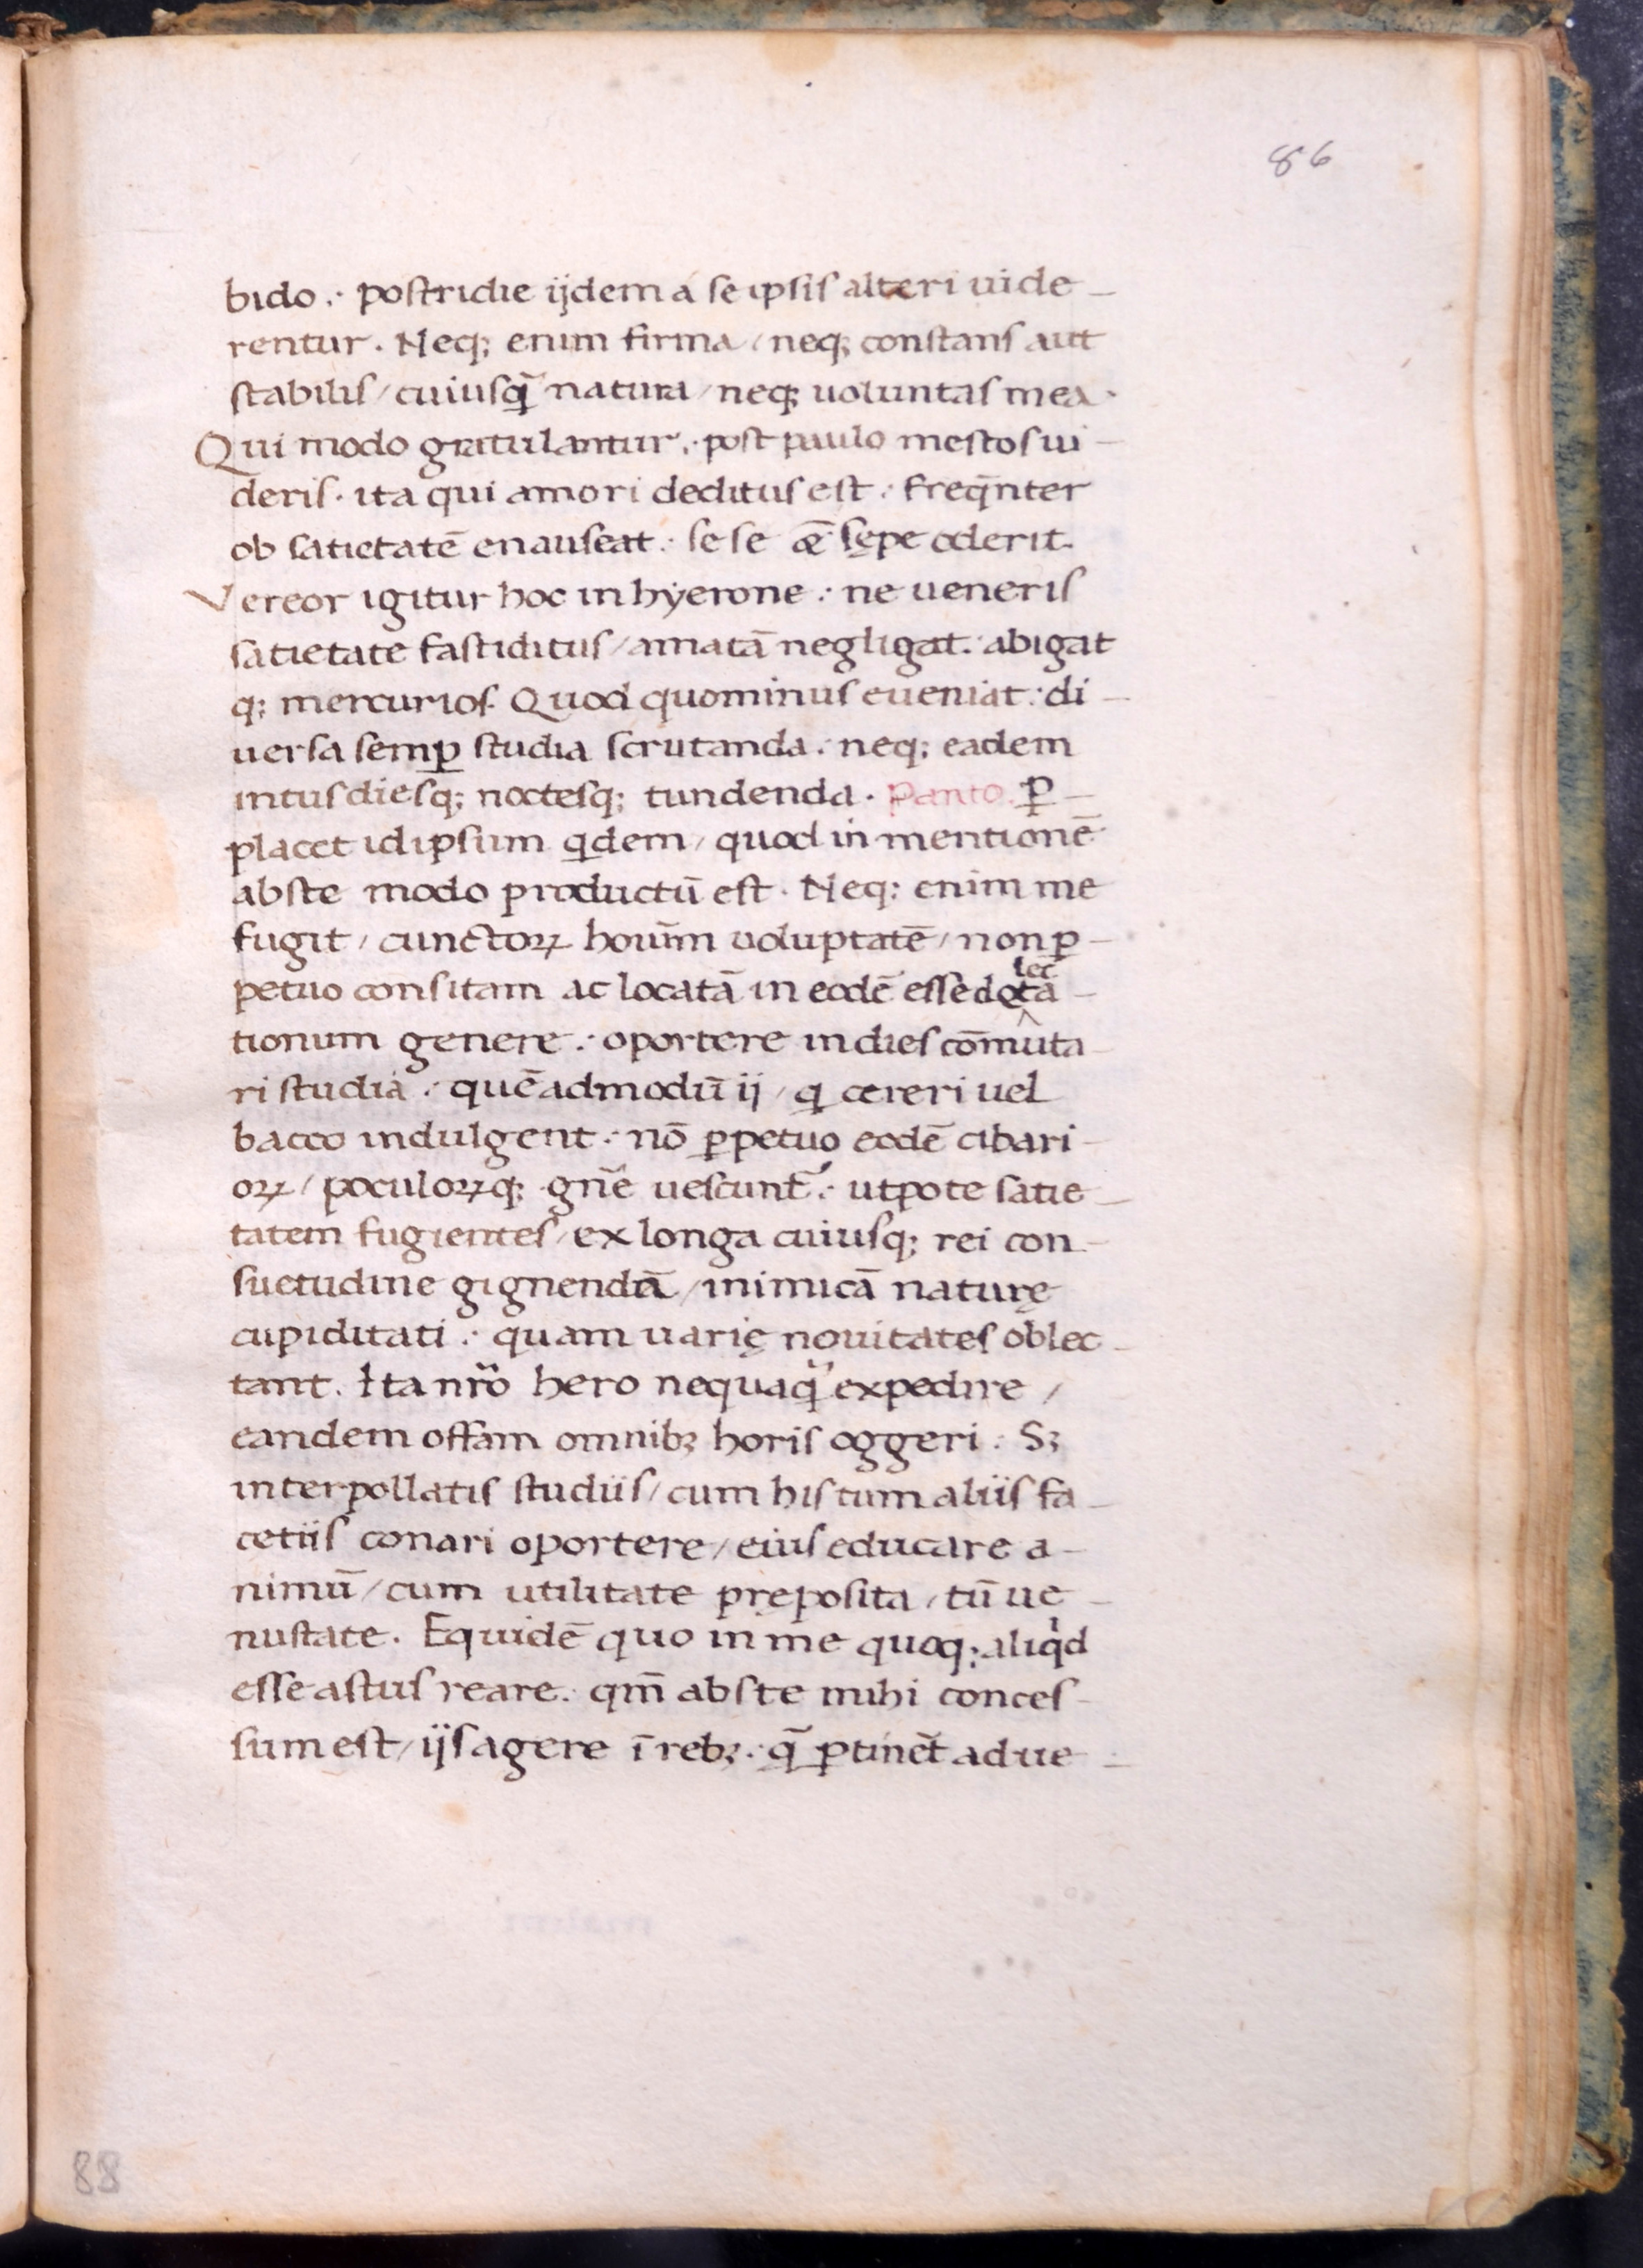 86
bido .· postridie ijdem a se ipsis alteri uide –
rentur . Neq; enim firma / neq; constans aut
stabilis / cuiusq̄ natura / neq; uoluntas mea ·
Qui modo gratulantur .· post paulo mestos ui –
deris · ita qui amori deditus est .· freq̄nter
ob satietatē enauseat .· se se ǣ sępe oderit.
Vereor igitur hoc in hyerone .· ne ueneris
satietate fastiditus / amatā negligat .· abigat
q; mercurios. Quod quominus eueniat .· di –
uersa semꝑ studia scrutanda .· neq; eadem
intus diesq; noctesq; tundenda · Panto. ꝑ –
placet id ipsum qdem / quod in mentionē
abste modo productū est · Neq; enim me
fugit / cunctoꝝ houīm uoluptatē / non ꝑ –
petuo consitam ac locatā in eodē esse delecta –
tionum genere .· oportere in dies cōmuta –
ri studia .· quēadmodū ij / q cereri uel
bacco indulgent .· nō ꝑpetuo eodē cibari –
oꝝ / poculoꝝq; gñe uescunt̄ .· utpote satie –
tatem fugientes / ex longa cuiusq; rei con –
suetudine gignendā / inimicā naturę
cupiditati .· quam uarię nouitates oblec –
tant. Ita nr̄o hero nequaq̄ expedire /
eandem offam omnibꝫ horis oggeri .· Sꝫ
interpollatis studiis / cum his tum aliis fa –
cetiis conari oportere / eius educare a –
nimū / cum utilitate pręposita / tū ue –
nustate. Equidē quo in me quoq; aliqd
esse astus reare .· qm̄ abste mihi conces –
sum est / ijs agere ī rebꝫ .· q̄ ꝑtinēt ad ue –
88